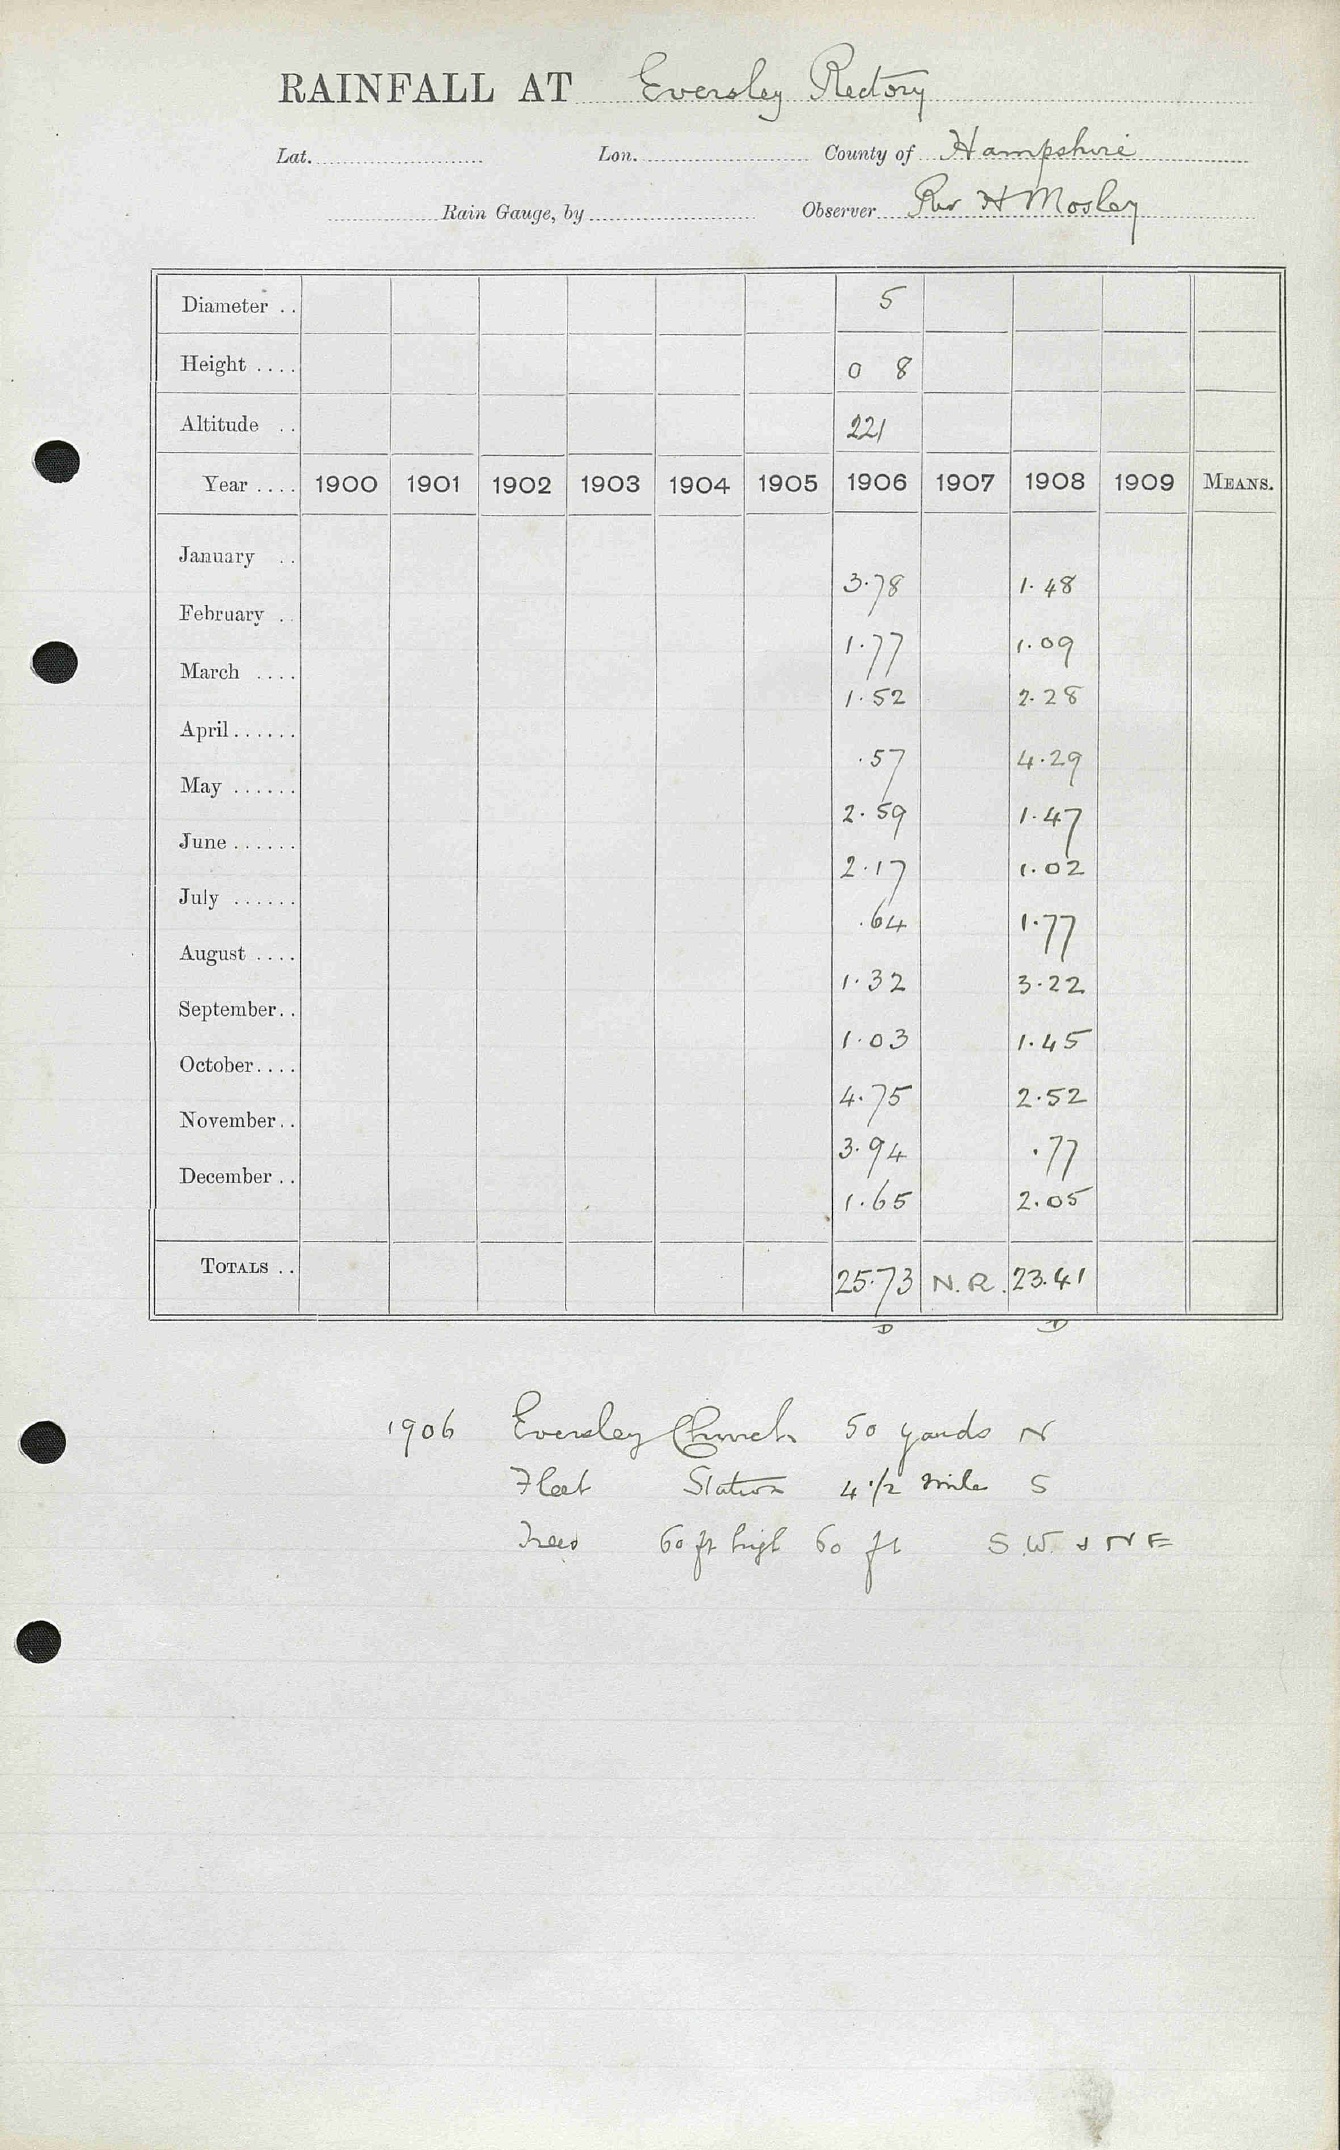 RAINFALL AT Eversley Rectory
Lat. Lon. County of Hampshire
Rain Gauge, by Observer Rev H Mosley
Diameter .. 5
Height .... 0 8
Altitude .. 221
Year .... 1900 1901 1902 1903 1904 1905 1906 1907 1908 1909 MEANS.
January .. 3.78 1.48
February .. 1.77 1.09
March .... 1.52 2.28
April ...... .57 4.29
May ...... 2.59 1.47
June ...... 2.17 1.02
July ...... .64 1.77
August .... 1.32 3.22
September.. 1.03 1.45
October.... 4.75 2.52
November.. 3.94 .77
December .. 1.65 2.05
TOTALS .. 25.73 N.R. 23.41
D D
1906 Eversley Church 50 yards N
Fleet Station 4 1/2 mile S
Trees 60 ft high 60 ft S.W. & N E